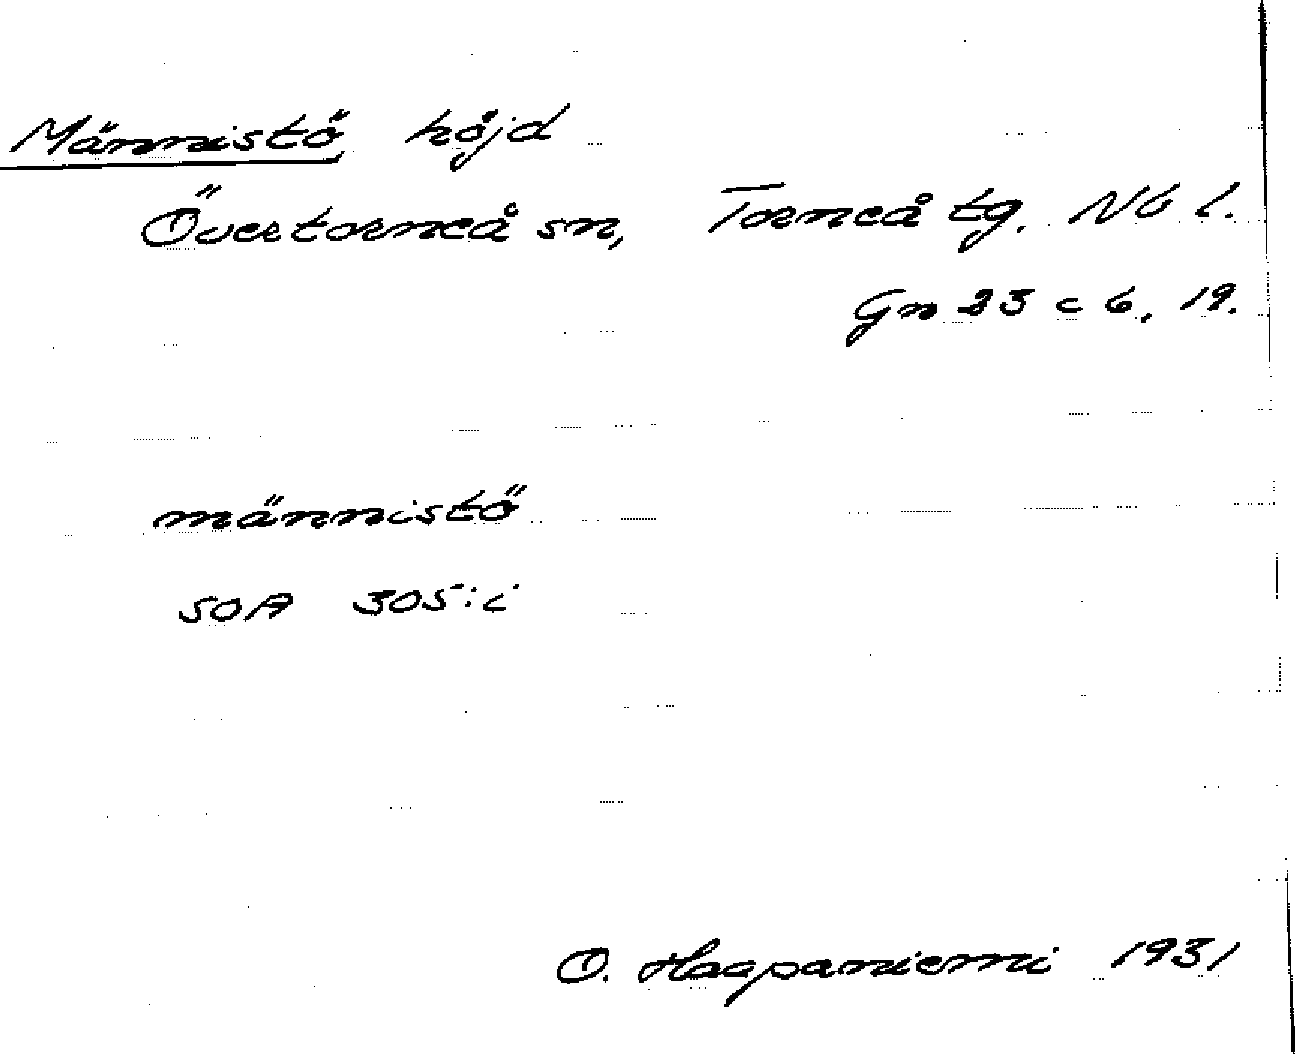 Männistö höjd
Övertorneå sn, Torneå tg. Nb l.
Gn 23 c 6, 19.
männistö
SOA 305:i
O. Haapaniemi 1931